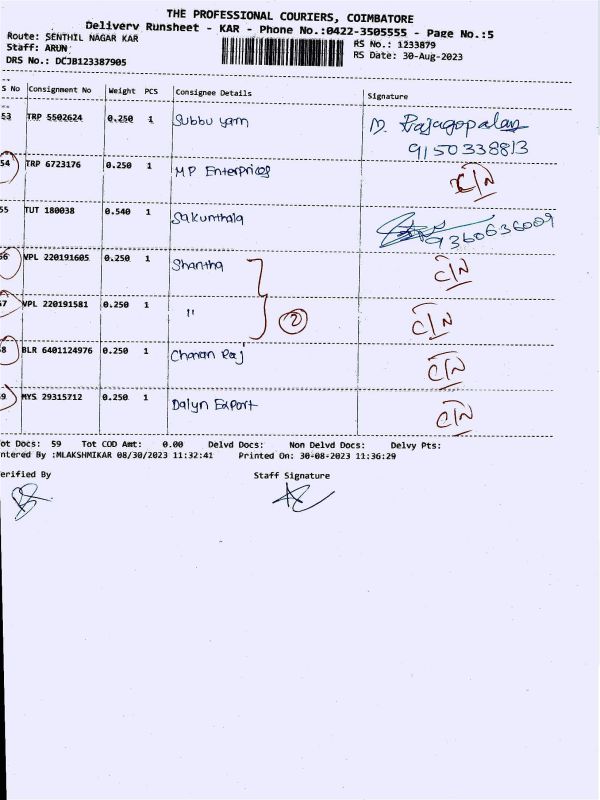 THE PROFESSIONAL COURIERS, COIMBATORE
Delivery Runsheet - KAR - Phone No.:0422-3505555 - Page No.:5
Route: SENTHIL NAGAR KAR RS No.: 1233879
Staff: ARUN RS Date: 30-Aug-2023
DRS No.: DCJB123387905
S No Consignment No Weight PCS Consignee Details Signature
53 TRP 5502624 0.250 1 Subbu yam D. Rajagopalan
9150338813
54 TRP 6723176 0.250 1 MP Enterprices C/N
55 TUT 180038 0.540 1 Sakunthala 9360636009
56 VPL 220191605 0.250 1 Shantha C/N
57 VPL 220191581 0.250 1 " 2 C/N
58 BLR 6401124976 0.250 1 Charan Raj C/N
59 MYS 29315712 0.250 1 Dalyn Export C/N
ot Docs: 59 Tot COD Amt: 0.00 Delvd Docs: Non Delvd Docs: Delvy Pts:
ntered By :MLAKSHMIKAR 08/30/2023 11:32:41 Printed On: 30-08-2023 11:36:29
erified By Staff Signature